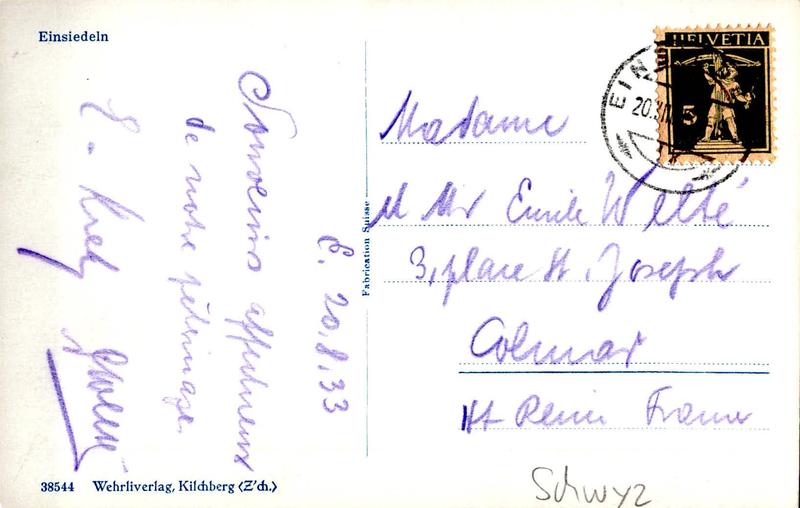 Einsiedeln
HELVETIA
5
EIN
20.
Souvenirs affectueux
de notre pélerinage.
E. 20.8.33
Madame
M Mr Emile Welté
3, place St. Joseph
Colmar
Ht Rhin France
Fabrication Suisse
38544 Wehrliverlag, Kilchberg (Z'ch.)
Schwyz